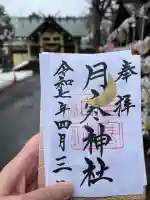 奉拝
月寒神社
令和七年四月三日